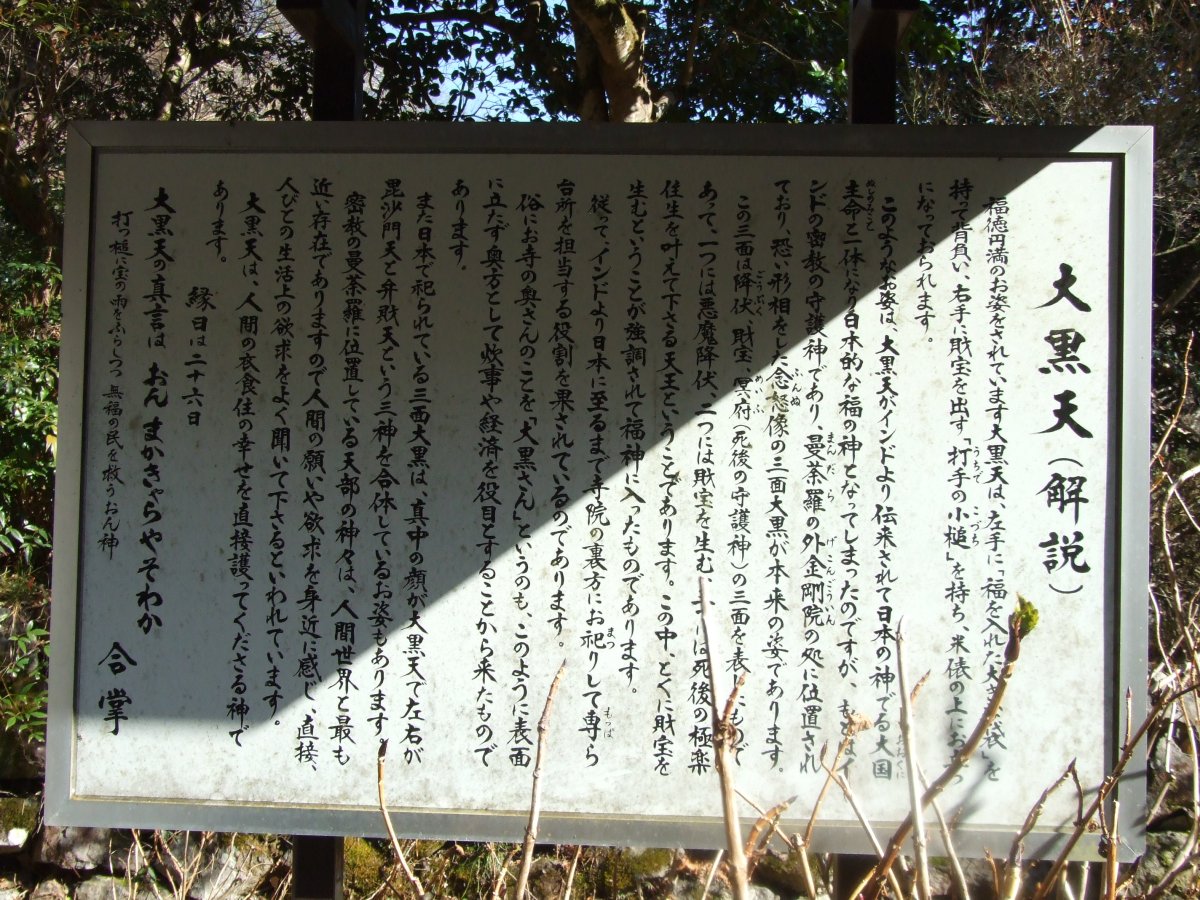 大黒天(解説)
福徳円満のお姿をされています大黒天は、左手に「福を入れた大き 袋」を
持って背負い、右手に財宝を出す「打手の小槌」を持ち、米俵の上にお立つ
になっておられます。
このようなお姿は、大黒天がインドより伝来されて日本の神でる大国
主命と一体になり日本的な福の神となってしまったのですが、もとはイ
ンドの密教の守護神であり、曼荼羅の外金剛院の処に位置され
ており、恐い形相をした忿怒像の三面大黒が本来の姿であります。
この三面は降伏、財宝、冥府(死後の守護神)の三面を表したもので
あって、一つには悪魔降伏、二つには財宝を生む、 には死後の極楽
往生を叶えて下さる天王ということであります。この中、とくに財宝を
生むということが強調されて福神に入ったものであります。
従って、インドより日本に至るまで寺院の裏方にお祀りして専ら
台所を担当する役割を果されているのであります。
俗にお寺の奥さんのことを「大黒さん」というのも、このように表面
に立たず奥方として炊事や経済を役目とすることから来たもので
あります。
また日本で祀られている三面大黒は、真中の顔が大黒天で左右が
毘沙門天と弁財天という三神を合体しているお姿もあります。
密教の曼荼羅に位置している天部の神々は、人間世界と最も
近い存在でありますので人間の願いや欲求を身近に感じ、直接、
人びとの生活上の欲求をよく聞いて下さるといわれています。
大黒天は、人間の衣食住の幸せを直接護ってくださる神で
あります。
縁日は二十六日
大黒天の真言は おん まかきゃらやそわか
打つ槌に宝の雨をふらしつつ 無福の民を救うおん神
合掌